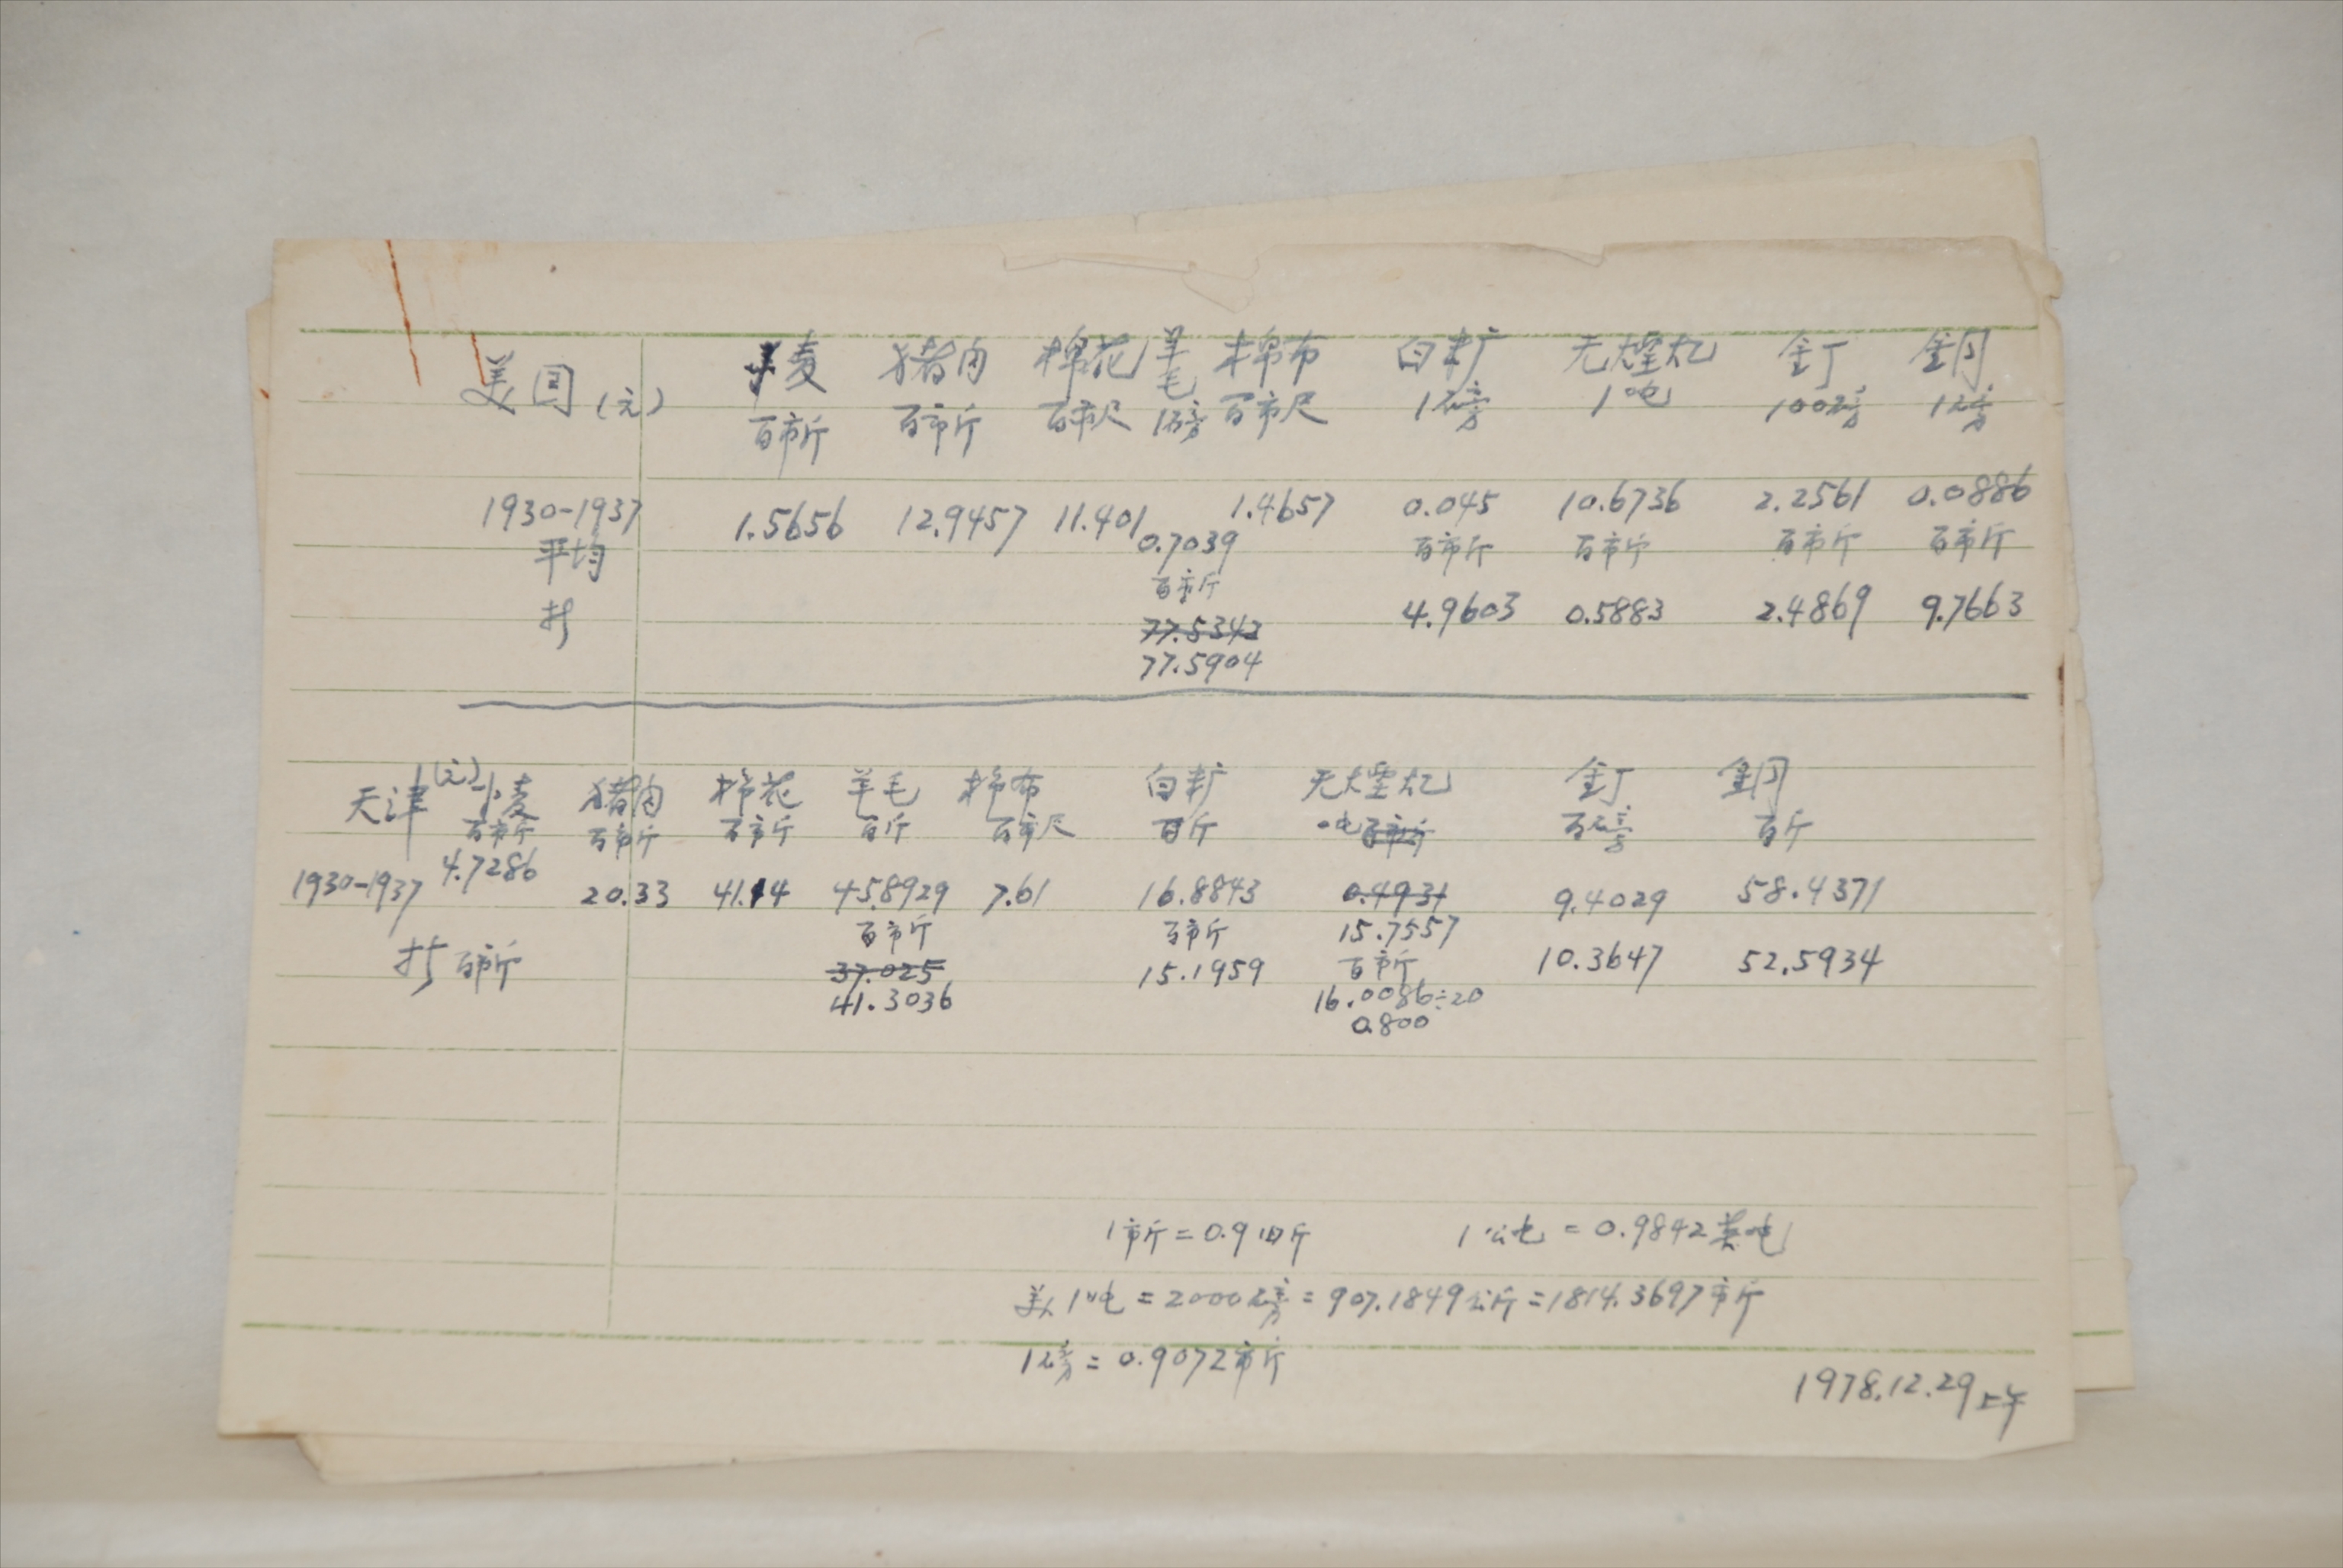 美国(元) 小麦 猪肉 棉花 羊毛 棉布 白粆 无煙𤆵 釘 銅
百市斤 百市斤 百市尺 1磅 百市尺 1磅 1吨 100磅 1磅
1930-1937 1.5656 12.9457 11.401 0.7039 1.4657 0.045 10.6736 2.2561 0.0886
平均 百市斤 百市斤 百市斤 百市斤 百市斤
折 77.5343 4.9603 0.5883 2.4869 9.7663
77.5904
天津(元) 小麦 猪肉 棉花 羊毛 棉布 白粆 无煙𤆵 釘 銅
百市斤 百市斤 百市斤 百斤 百市尺 百斤 吨 百市斤 百磅 百斤
1930-1937 4.7286 20.33 41.14 45.8929 7.61 16.8843 0.4931 9.4029 58.4371
百市斤 百市斤 15.7557
折 百市斤 37.025 15.1959 百市斤 10.3647 52.5934
41.3036 16.0086÷20
0.800
1市斤=0.9旧斤 1公吨=0.9842英吨
美1吨=2000磅=907.1849公斤=1814.3697市斤
1磅=0.9072市斤
1978.12.29上午